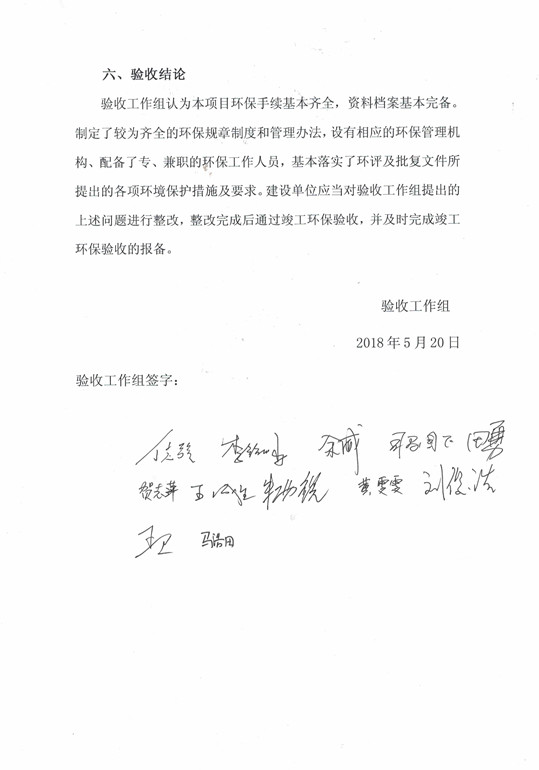 六、验收结论
验收工作组认为本项目环保手续基本齐全，资料档案基本完备。
制定了较为齐全的环保规章制度和管理办法，设有相应的环保管理机
构、配备了专、兼职的环保工作人员，基本落实了环评及批复文件所
提出的各项环境保护措施及要求。建设单位应当对验收工作组提出的
上述问题进行整改，整改完成后通过竣工环保验收，并及时完成竣工
环保验收的报备。
验收工作组
2018 年 5 月 20 日
验收工作组签字：
余斌 田勇
贺志萍 黄雯雯 刘俊浩
王卫